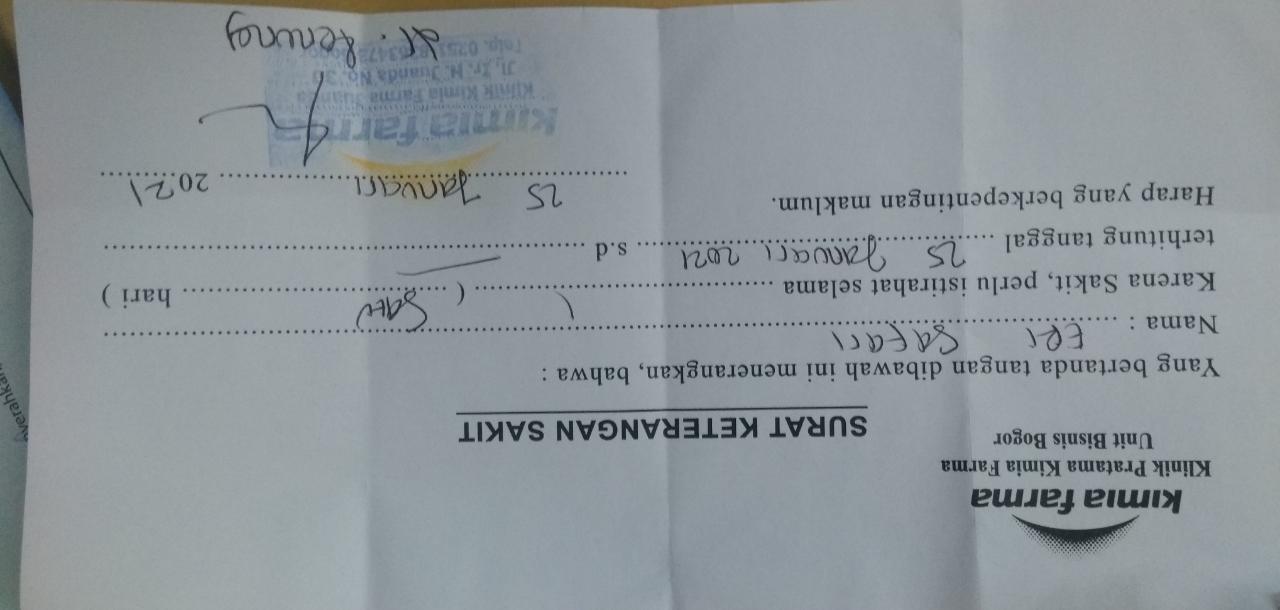 kimia farma
Klinik Pratama Kimia Farma
Unit Bisnis Bogor
SURAT KETERANGAN SAKIT
Yang bertanda tangan dibawah ini menerangkan, bahwa :
Nama : ERI SAFARI
Karena Sakit, perlu istirahat selama 1 ( Satu hari )
terhitung tanggal 25 Januari 2021 s.d
Harap yang berkepentingan maklum.
25 Januari 2021
kimia farma
Klinik Kimia Farma Juanda
Jl. Ir. H. Juanda No. 30
Telp. 0251
dr.